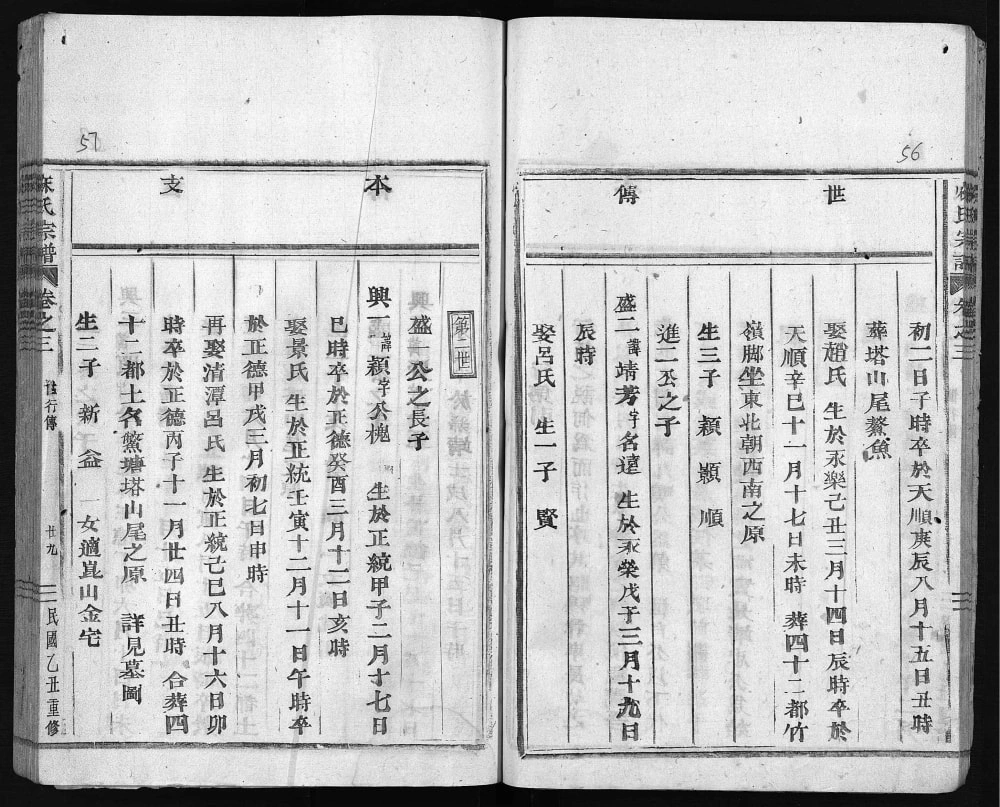 56
世傳
初二日子時卒於天順庚辰八月十五日丑時
葬塔山尾鰲魚
娶趙氏 生於永樂己丑三月十四日辰時卒於
天順辛巳十一月十七日未時 葬四十二都竹
嶺脚坐東北朝西南之原
生三子 潁 顥 順
進二公之子
盛二諱靖芳字名達 生於永樂戊子三月十九日
辰時
娶呂氏 生一子 賢
57
本支
第二世
盛一公之長子
興一諱潁字公槐 生於正統甲子二月十七日
巳時卒於正德癸酉三月十二日亥時
娶景氏 生於正統壬寅十二月十一日午時卒
於正德甲戌三月初七日申時
再娶清潭呂氏 生於正統己巳八月十六日卯
時卒於正德丙子十一月廿四日丑時 合葬四
十二都土名鰲塘塔山尾之原 詳見墓圖
生二子 新 益 女適崑山金宅
氏宗譜 卷之三 行傳 廿九 民國乙丑重修